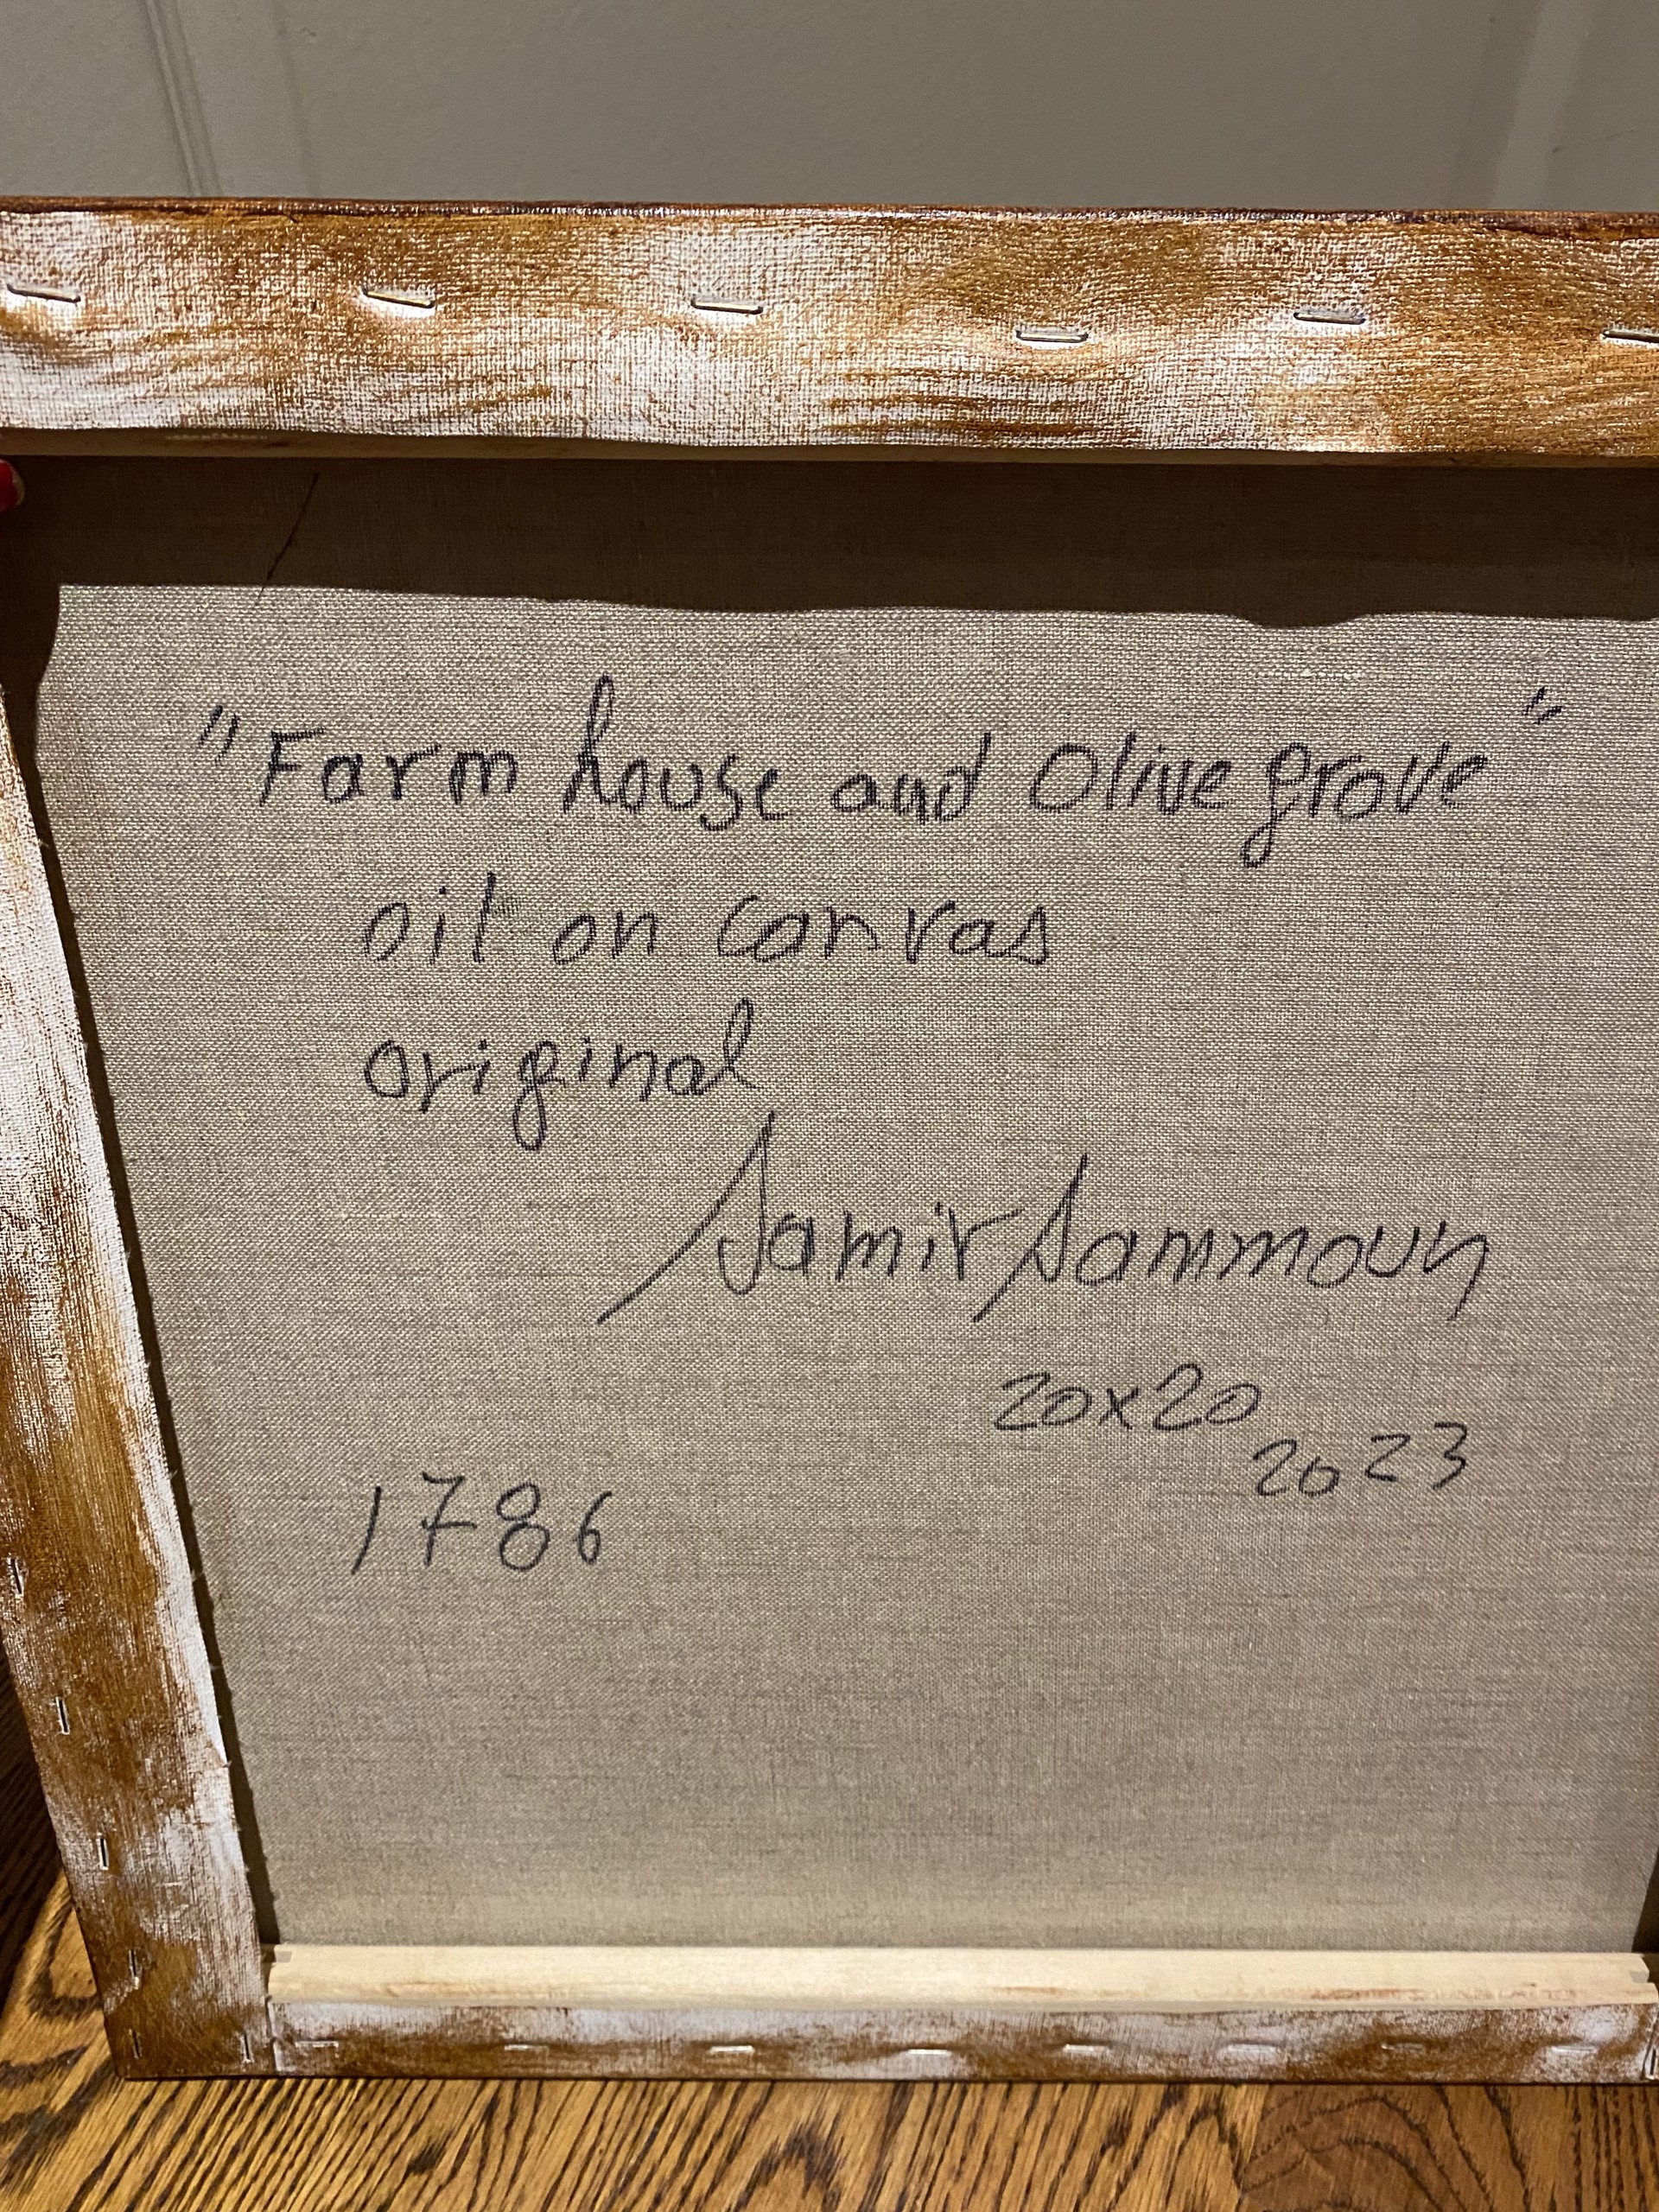 "Farm house and Olive grove"
oil on canvas
original
Samir Sammoun
20x20
2023
1786